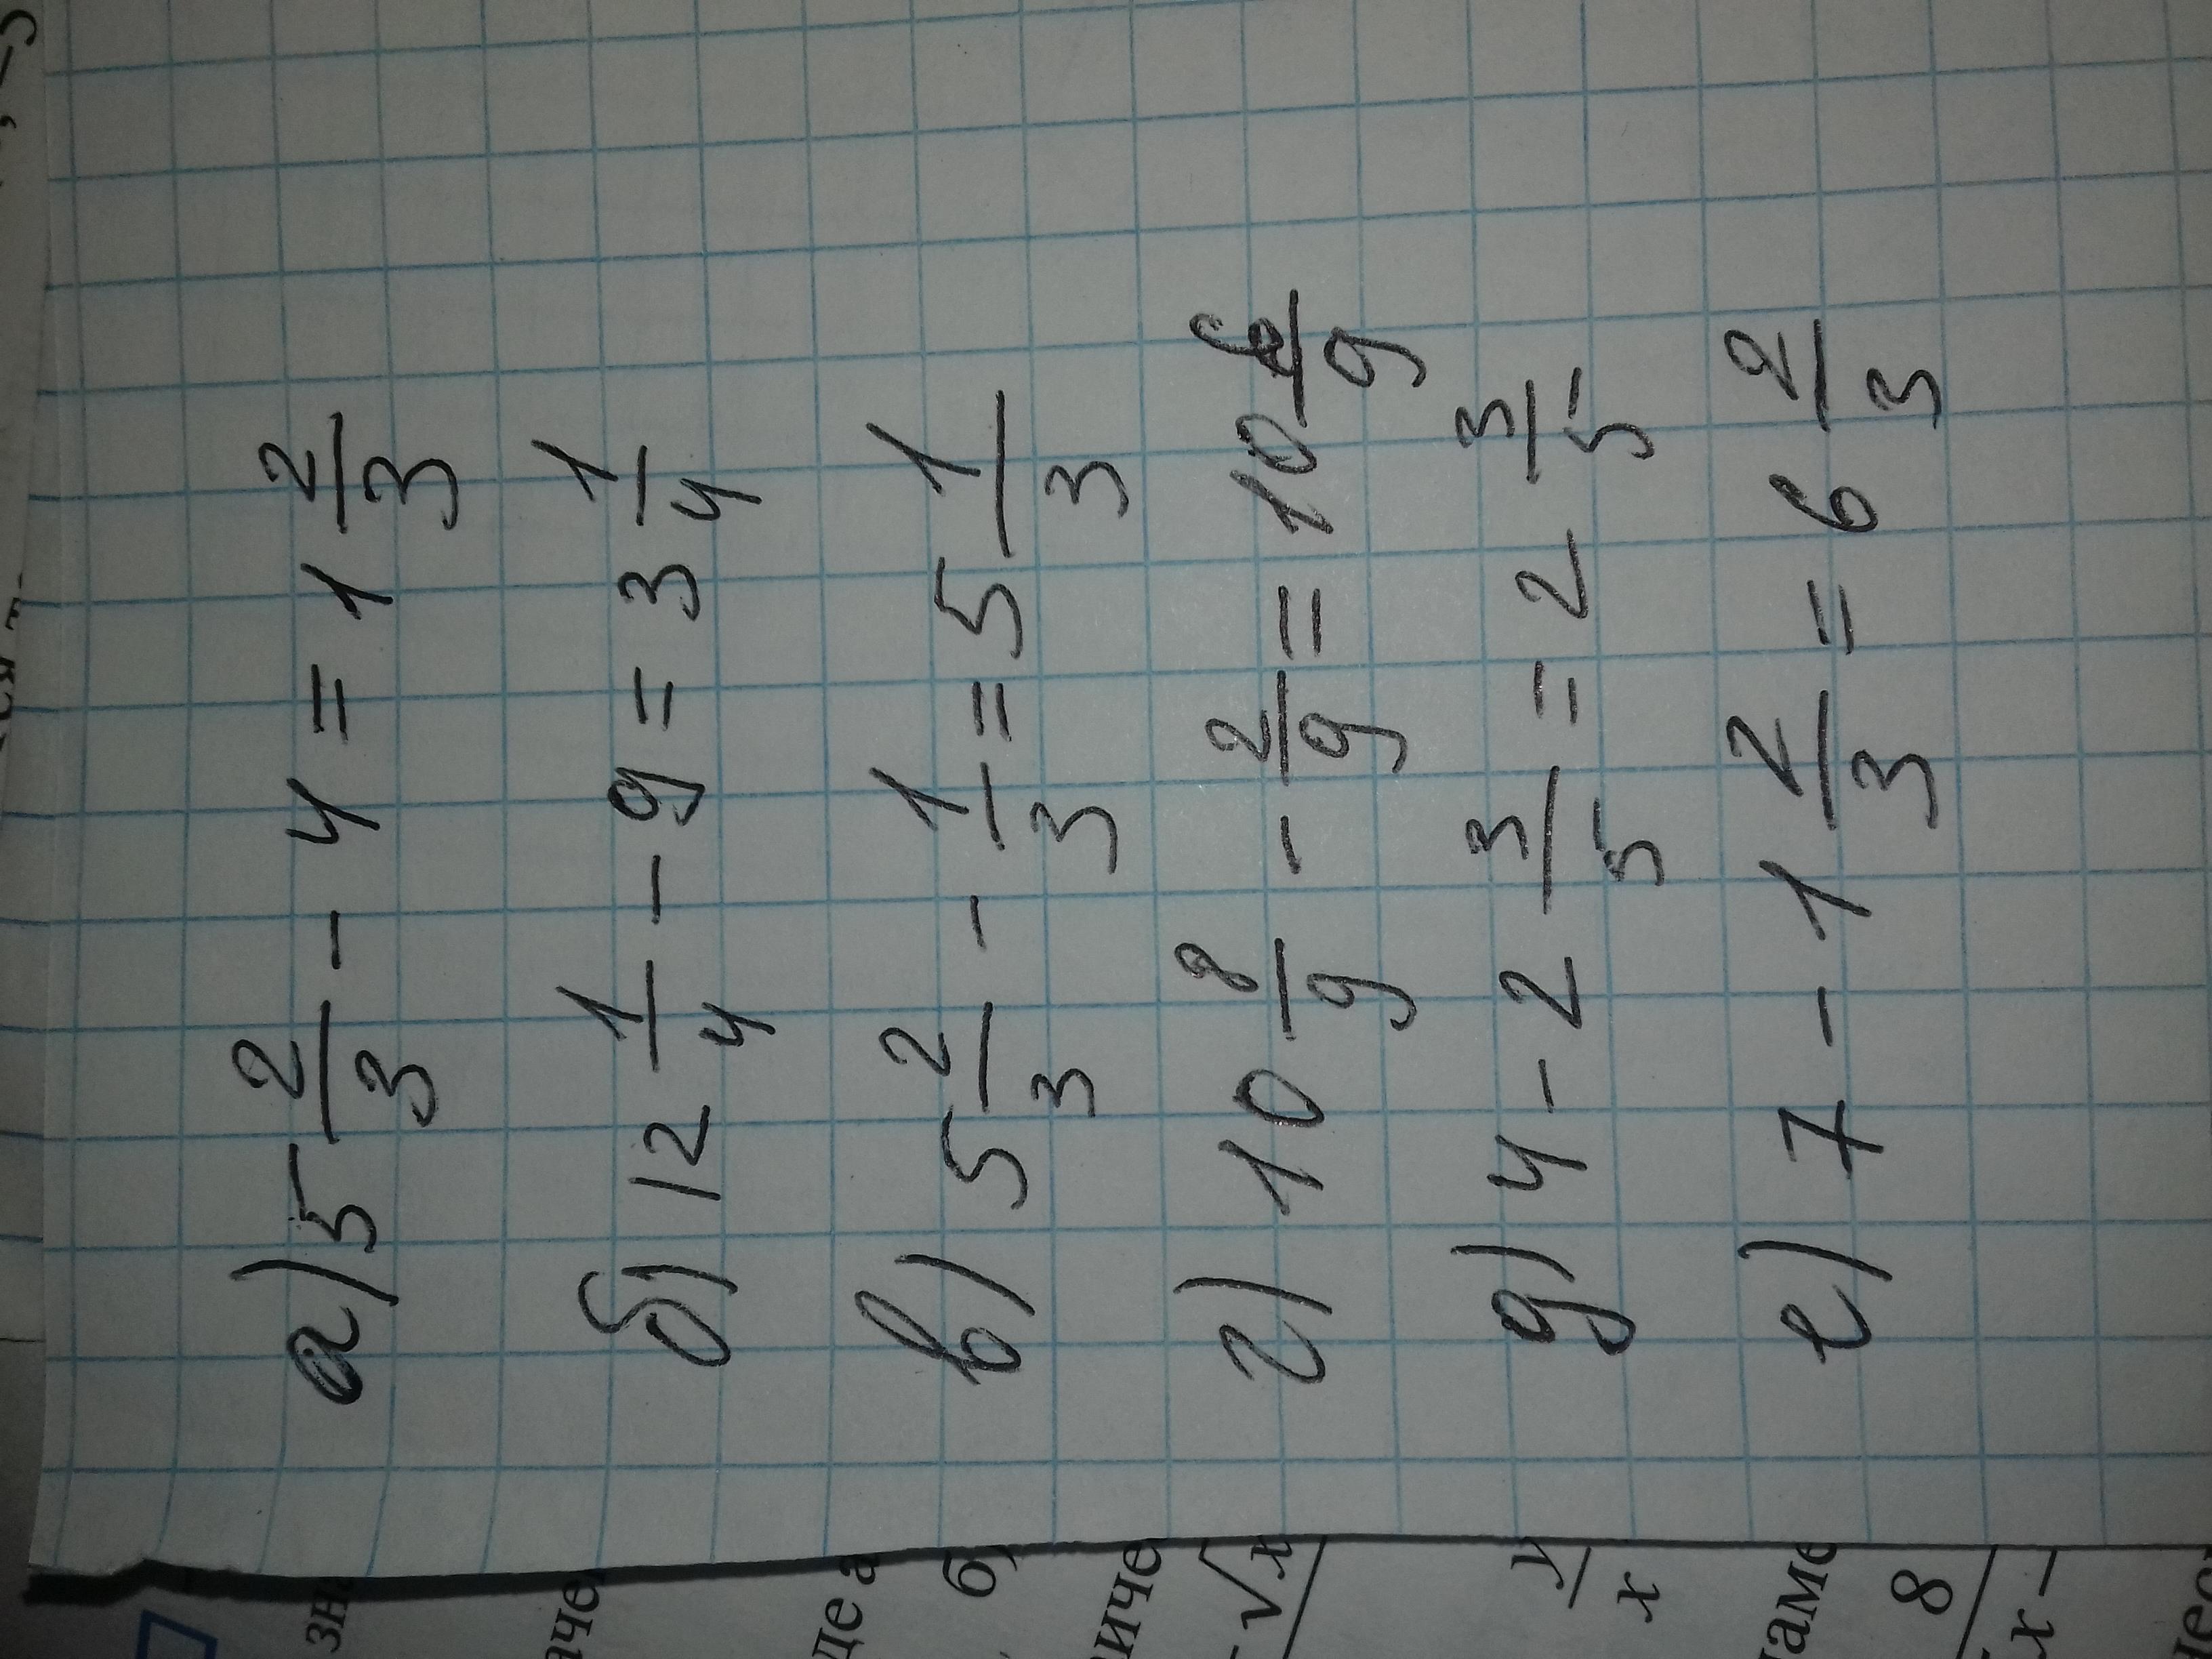 а) 5 2/3 - 4 = 1 2/3
б) 12 1/4 - 9 = 3 1/4
в) 5 2/3 - 1/3 = 5 1/3
г) 10 8/9 - 2/9 = 10 6/9
д) 4 - 2 3/5 = 2 3/5
е) 7 - 1 2/3 = 6 2/3
зн
аче
де а
б)
иче
√x
y/x
наме
8
x –